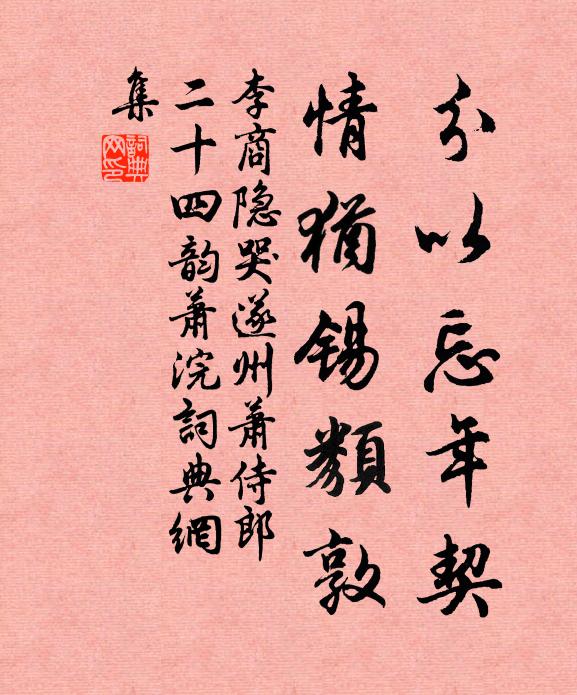 分以忘年契
情猶锡類敦
李商隐哭遂州蕭侍郎
二十四韵蕭浣詞典網
集
詞典网印